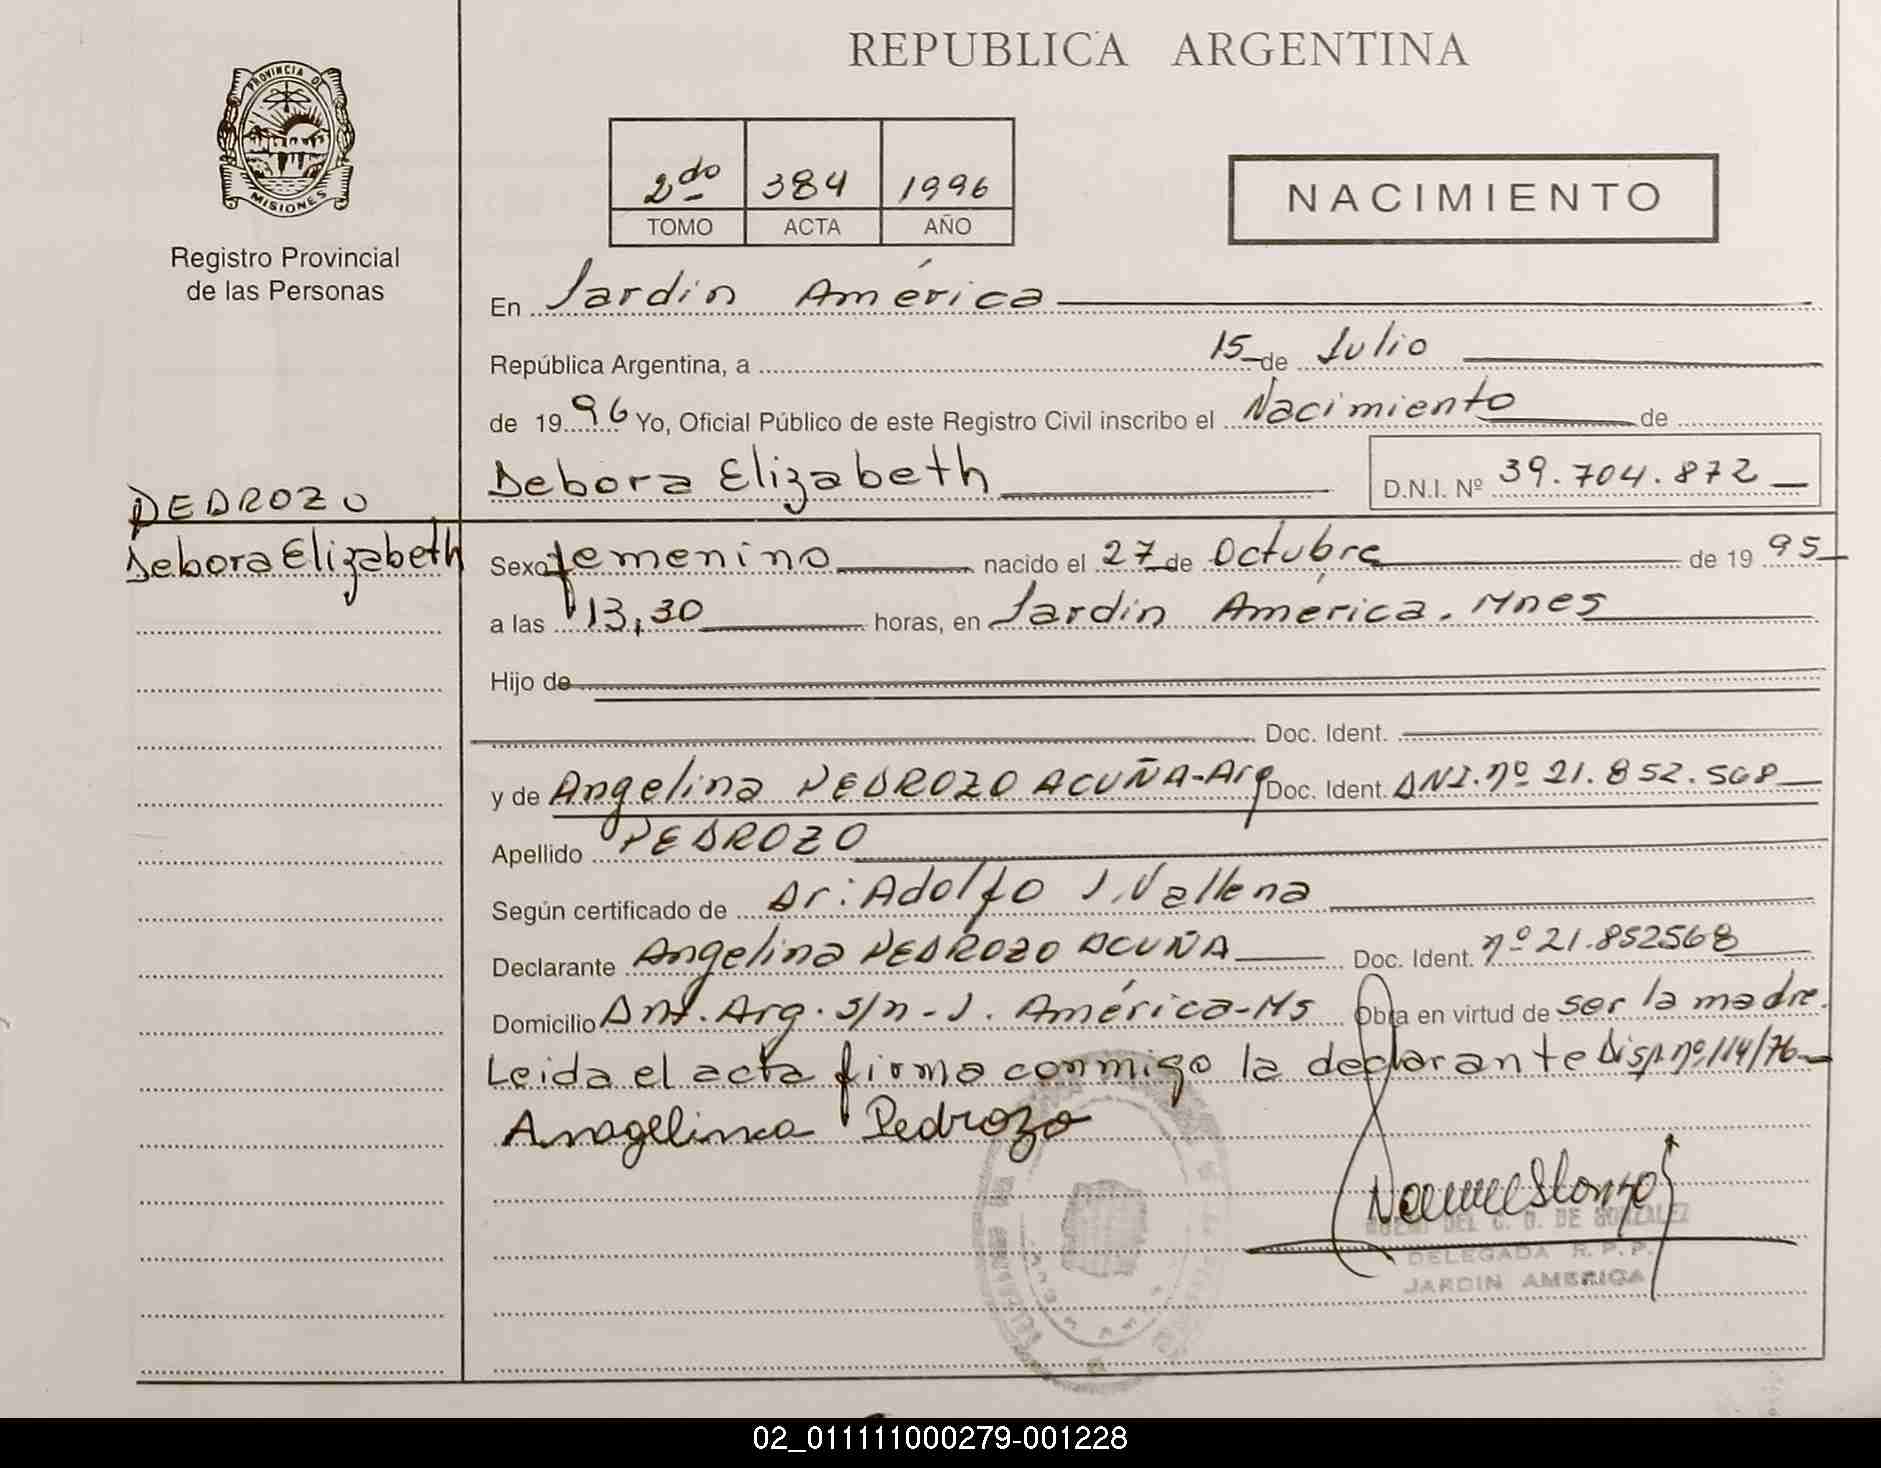 REPUBLICA ARGENTINA
PROVINCIA DE
MISIONES
Registro Provincial
de las Personas
2do 384 1996
TOMO ACTA AÑO
NACIMIENTO
En Jardin América
República Argentina, a 15 de Julio
de 1996 Yo, Oficial Público de este Registro Civil inscribo el Nacimiento de
Debora Elizabeth D.N.I. Nº 39.704.872
PEDROZO
Debora Elizabeth
Sexo femenino nacido el 27 de Octubre de 1995
a las 13,30 horas, en Jardin América. Mnes
Hijo de
Doc. Ident.
y de Angelina PEDROZO ACUÑA-Arg Doc. Ident. DNI. nº 21.852.568
Apellido PEDROZO
Según certificado de Dr: Adolfo J. Vallena
Declarante Angelina PEDROZO ACUÑA Doc. Ident. nº 21.852568
Domicilio Ant. Arg. s/n - J. América-Ms Obra en virtud de ser la madre.
Leida el acta firma conmigo la declarante Disp. nº 114/76
Anagelina Pedrozo
DEL C. D. DE GONZALEZ
DELEGADA R. P. P.
JARDIN AMERICA
02_011111000279-001228